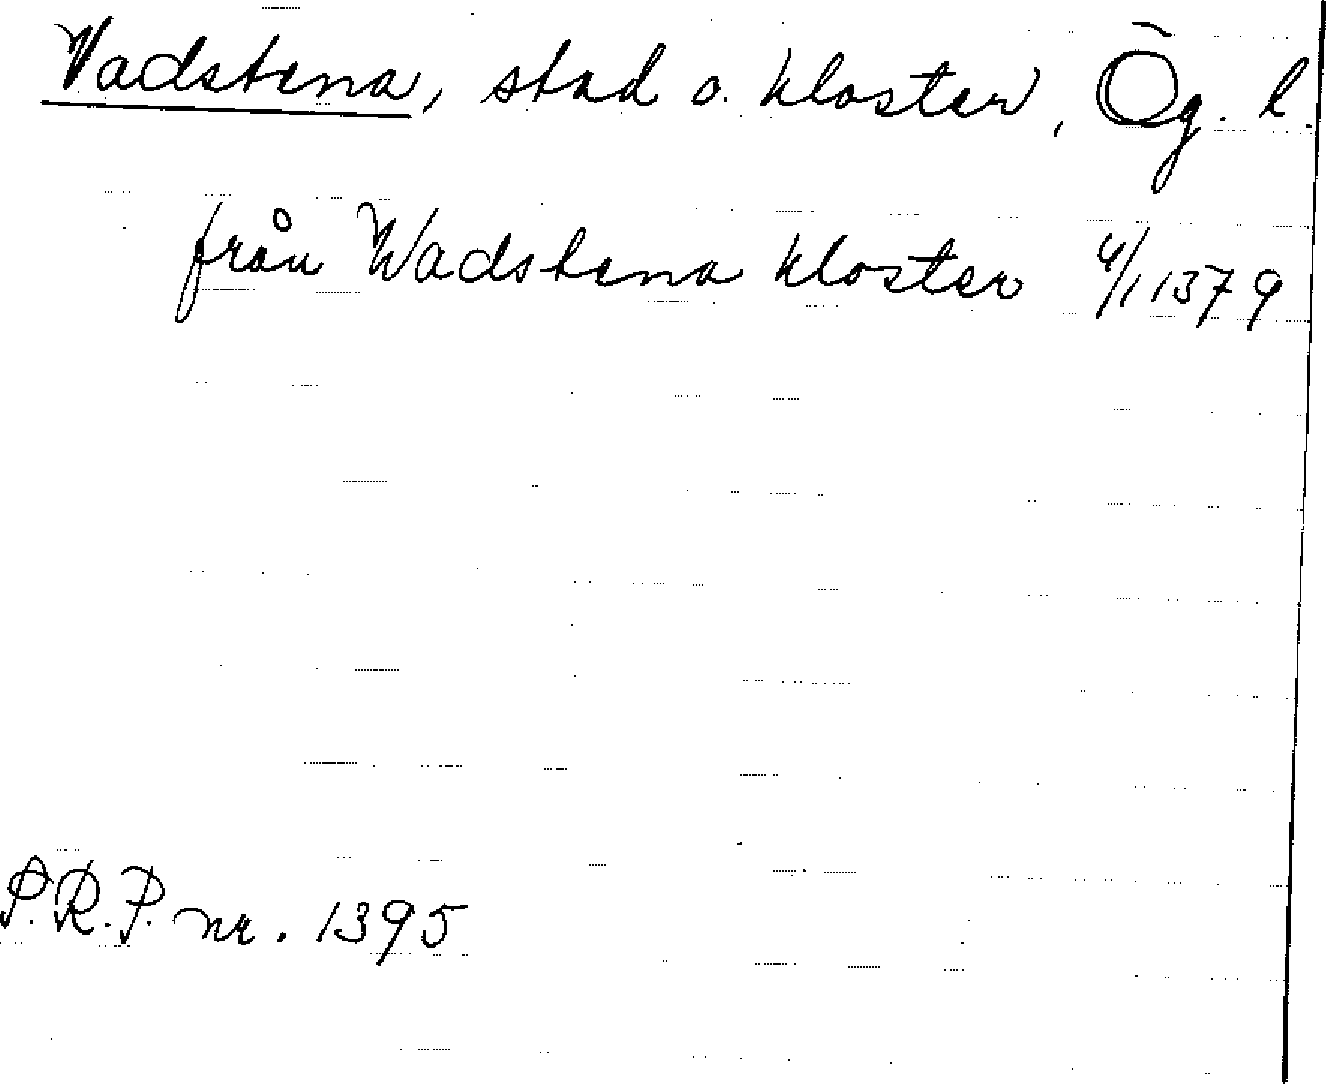 Vadstena, stad o. kloster, Ög. l.
från Wadstena kloster 4/1 1379
P.R.P. nr. 1395